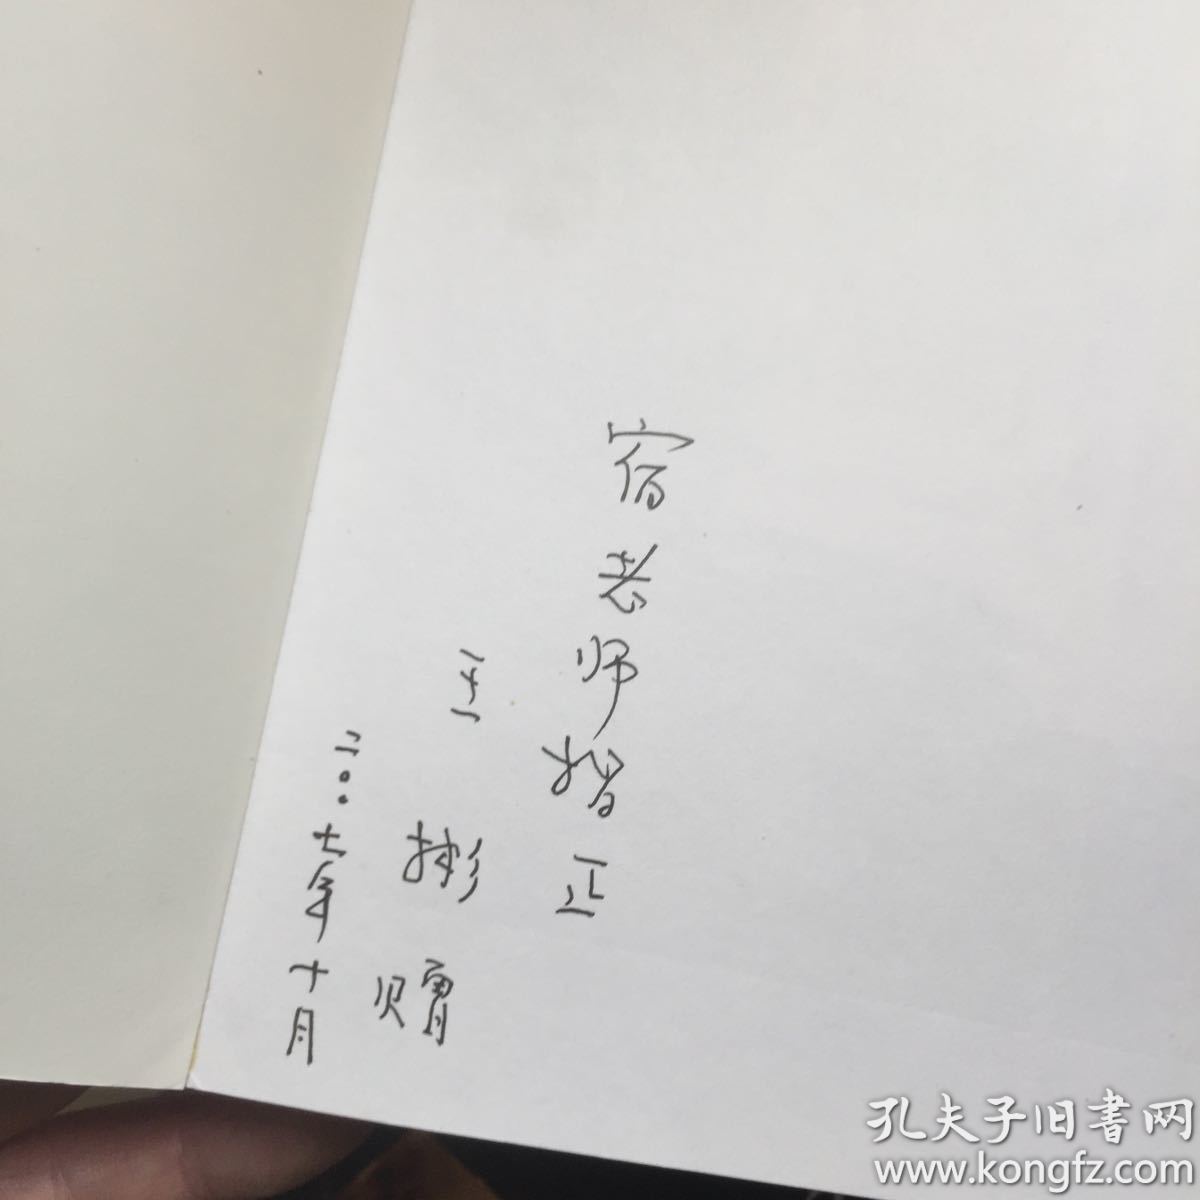 宿老师指正
王彬赠
二〇〇七年十月
孔夫子旧書网
www.kongfz.com